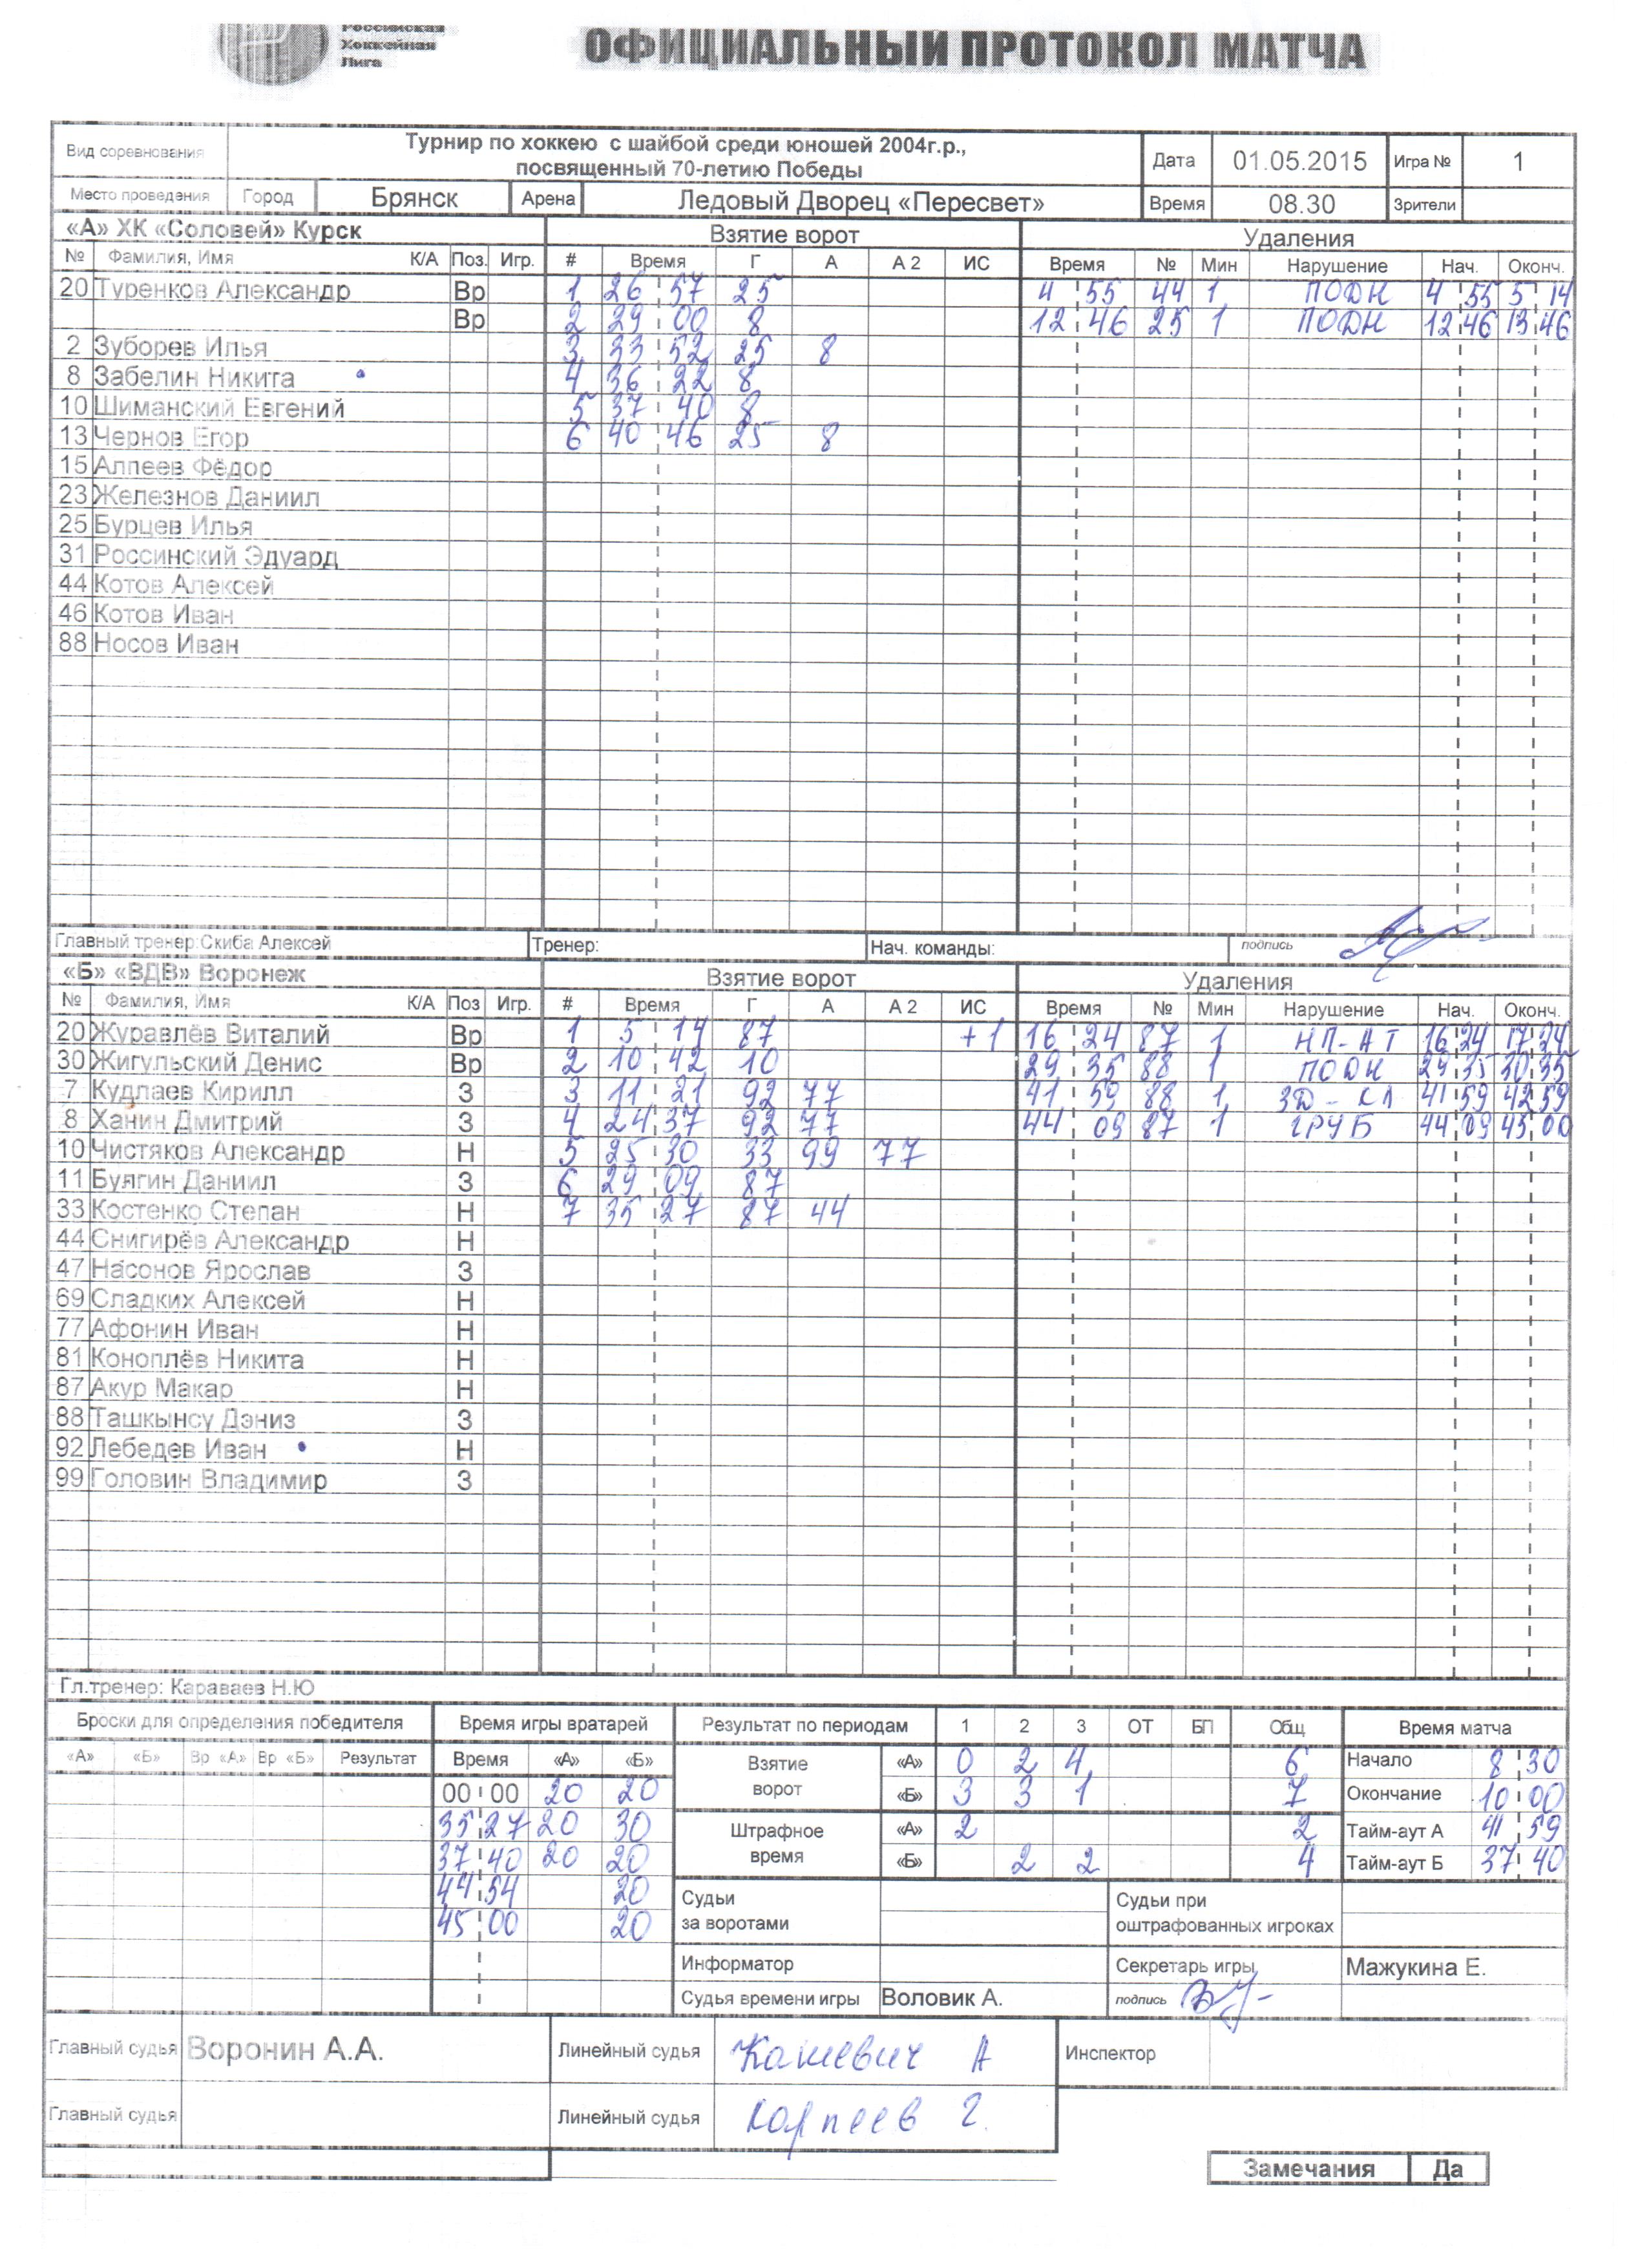 Российская
Хоккейная
Лига
ОФИЦИАЛЬНЫЙ ПРОТОКОЛ МАТЧА
Вид соревнования Турнир по хоккею с шайбой среди юношей 2004г.р., посвященный 70-летию Победы Дата 01.05.2015 Игра № 1
Место проведения Город Брянск Арена Ледовый Дворец «Пересвет» Время 08.30 Зрители
«А» ХК «Соловей» Курск Взятие ворот Удаления
№ Фамилия, Имя К/А Поз. Игр. # Время Г А А 2 ИС Время № Мин Нарушение Нач. Оконч.
20 Туренков Александр Вр 1 26 57 25 4 55 44 1 ПОДН 4 55 5 14
Вр 2 29 00 8 12 46 25 1 ПОДН 12 46 13 46
2 Зуборев Илья 3 33 52 25 8
8 Забелин Никита 4 36 22 8
10 Шиманский Евгений 5 37 40 8
13 Чернов Егор 6 40 46 25 8
15 Алпеев Фёдор
23 Железнов Даниил
25 Бурцев Илья
31 Россинский Эдуард
44 Котов Алексей
46 Котов Иван
88 Носов Иван
Главный тренер: Скиба Алексей Тренер: Нач. команды: подпись
«Б» «ВДВ» Воронеж Взятие ворот Удаления
№ Фамилия, Имя К/А Поз Игр. # Время Г А А 2 ИС Время № Мин Нарушение Нач. Оконч.
20 Журавлёв Виталий Вр 1 5 14 87 +1 16 24 87 1 НП-АТ 16 24 17 24
30 Жигульский Денис Вр 2 10 42 10 29 35 88 1 ПОДН 29 35 30 35
7 Кудлаев Кирилл З 3 11 21 92 77 41 59 88 1 ЗД-КЛ 41 59 42 59
8 Ханин Дмитрий З 4 24 37 92 77 44 09 87 1 ГРУБ 44 09 45 00
10 Чистяков Александр Н 5 25 30 33 99 77
11 Булгин Даниил З 6 29 09 87
33 Костенко Степан Н 7 35 27 87 44
44 Снигирёв Александр Н
47 Насонов Ярослав З
69 Сладких Алексей Н
77 Афонин Иван Н
81 Коноплёв Никита Н
87 Акур Макар Н
88 Ташкынсу Дэниз З
92 Лебедев Иван Н
99 Головин Владимир З
Гл.тренер: Караваев Н.Ю
Броски для определения победителя Время игры вратарей Результат по периодам 1 2 3 ОТ БП Общ Время матча
«А» «Б» Вр «А» Вр «Б» Результат Время «А» «Б» Взятие ворот «А» 0 2 4 6 Начало 8 30
00 00 20 20 «Б» 3 3 1 7 Окончание 10 00
35 27 20 30 Штрафное время «А» 2 2 Тайм-аут А 41 59
37 40 20 20 «Б» 2 2 4 Тайм-аут Б 37 40
44 54 20 Судьи за воротами Судьи при оштрафованных игроках
45 00 20
Информатор Секретарь игры Мажукина Е.
Судья времени игры Воловик А. подпись
Главный судья Воронин А.А. Линейный судья Кашевич А Инспектор
Главный судья Линейный судья Карпеев Г.
Замечания Да